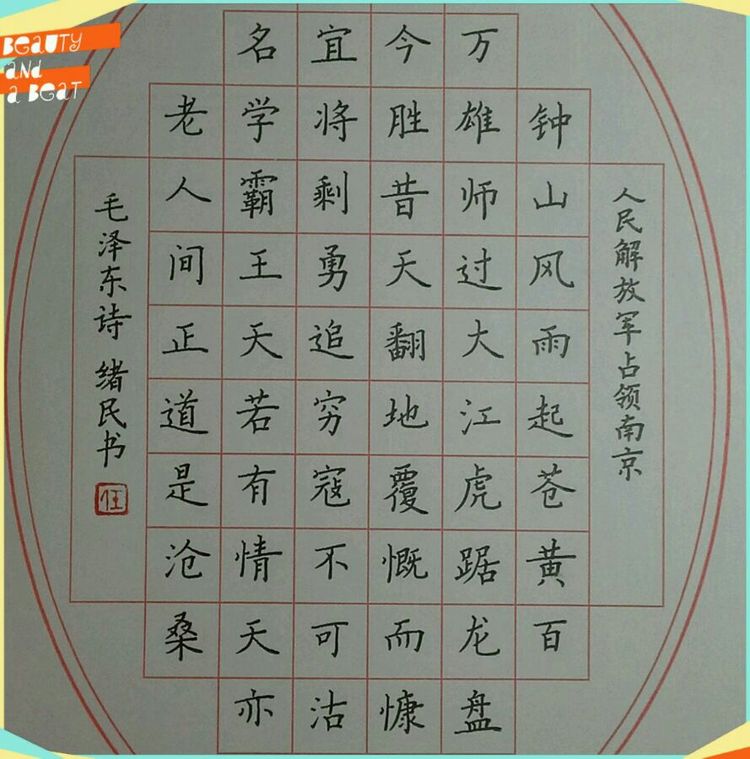 BeaUTY
aND
a BeaT
人民解放军占领南京
钟山风雨起苍黄百
万雄师过大江虎踞龙盘
今胜昔天翻地覆慨而慷
宜将剩勇追穷寇不可沽
名学霸王天若有情天亦
老人间正道是沧桑
毛泽东诗 绪民书